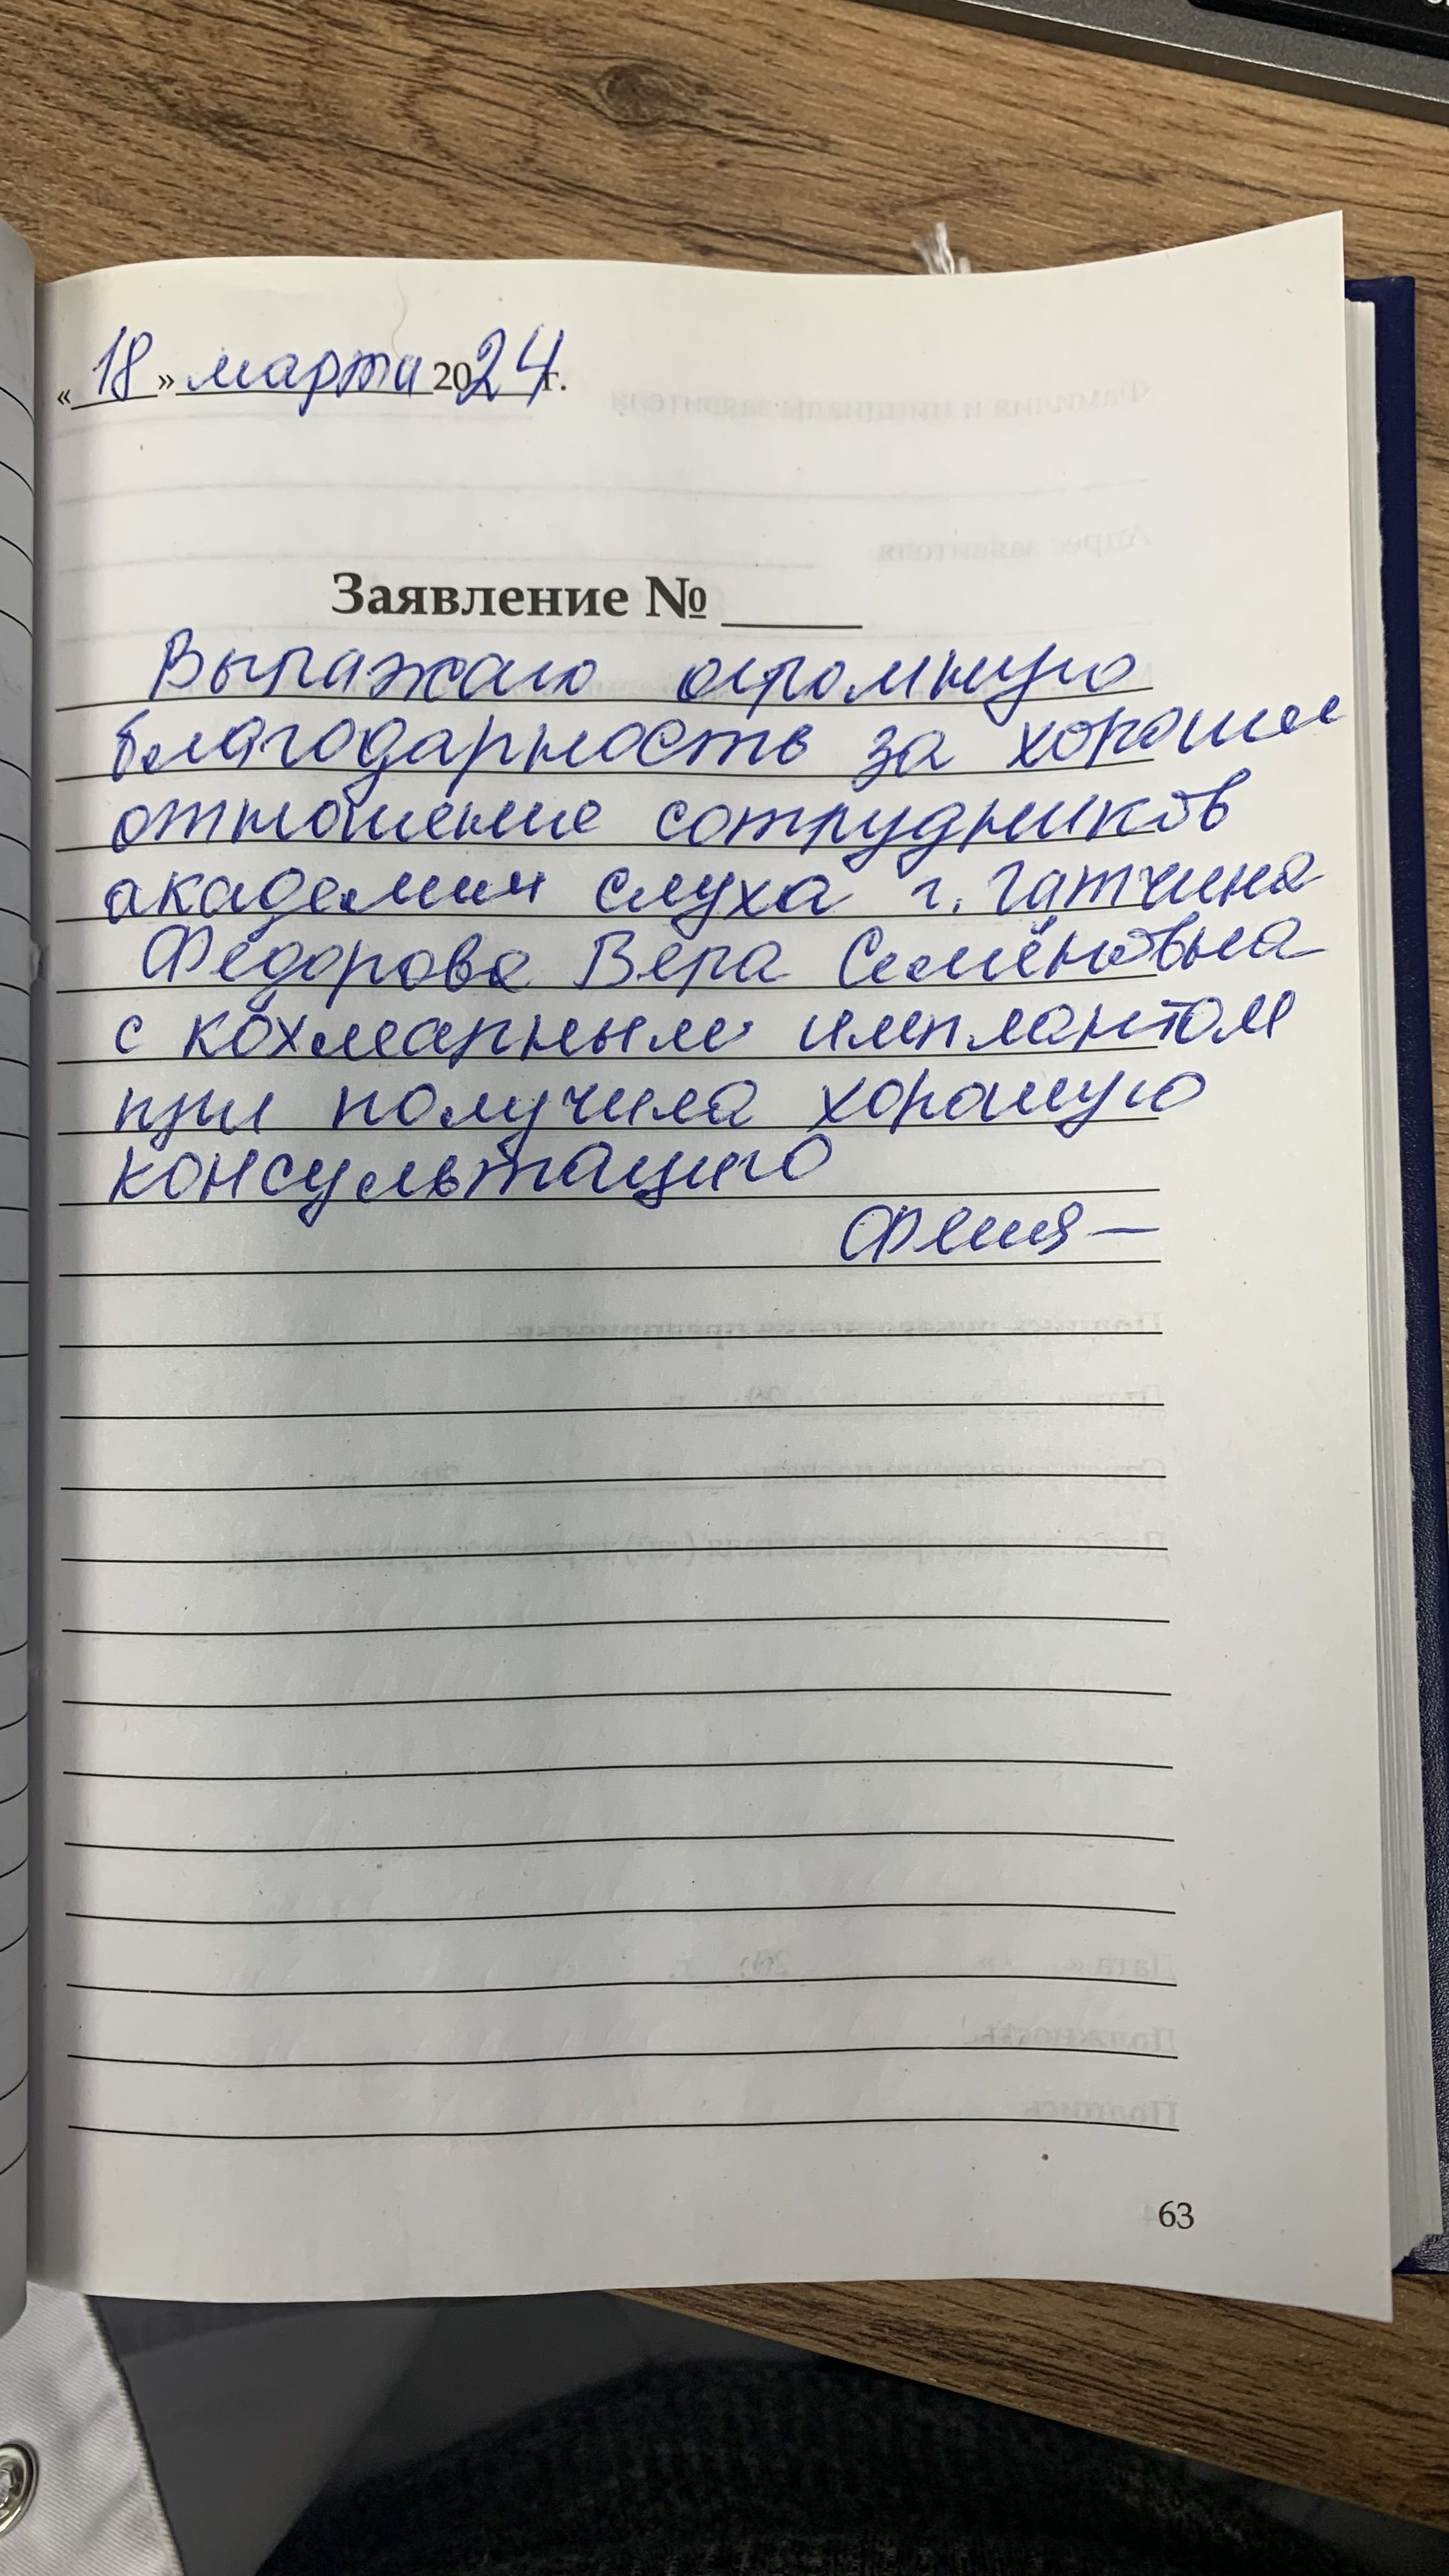 «18» марта 2024 г.
Заявление № ____
Выражаю огромную
благодарность за хорошее
отношение сотрудников
академии слуха г. Гатчина
Фёдорова Вера Семёновна
с кохлеарным имплантом
при получила хорошую
консультацию
63